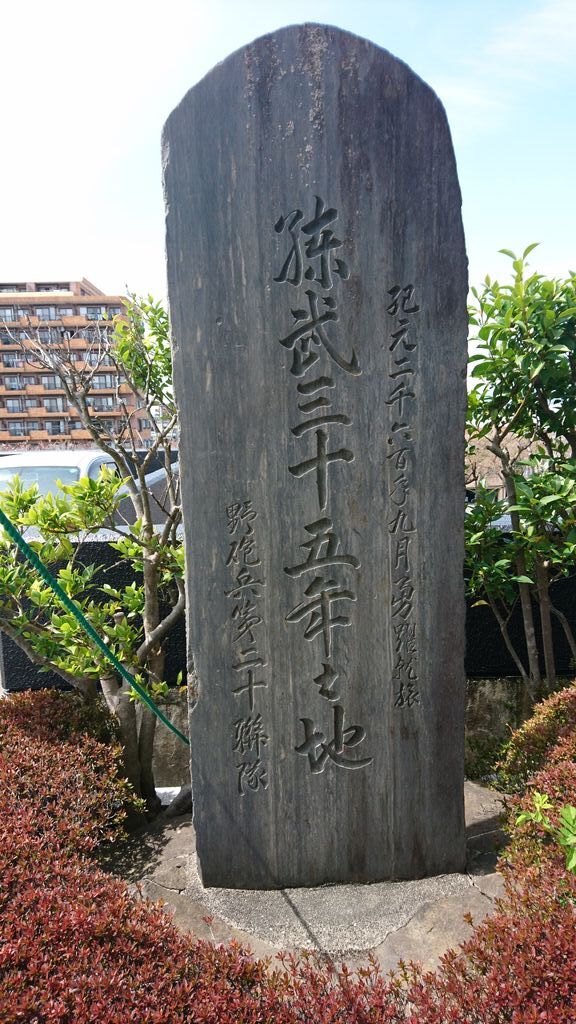 紀元二千六百年九月勇躍就旅
練武三十五年之地
野砲兵第二十聯隊